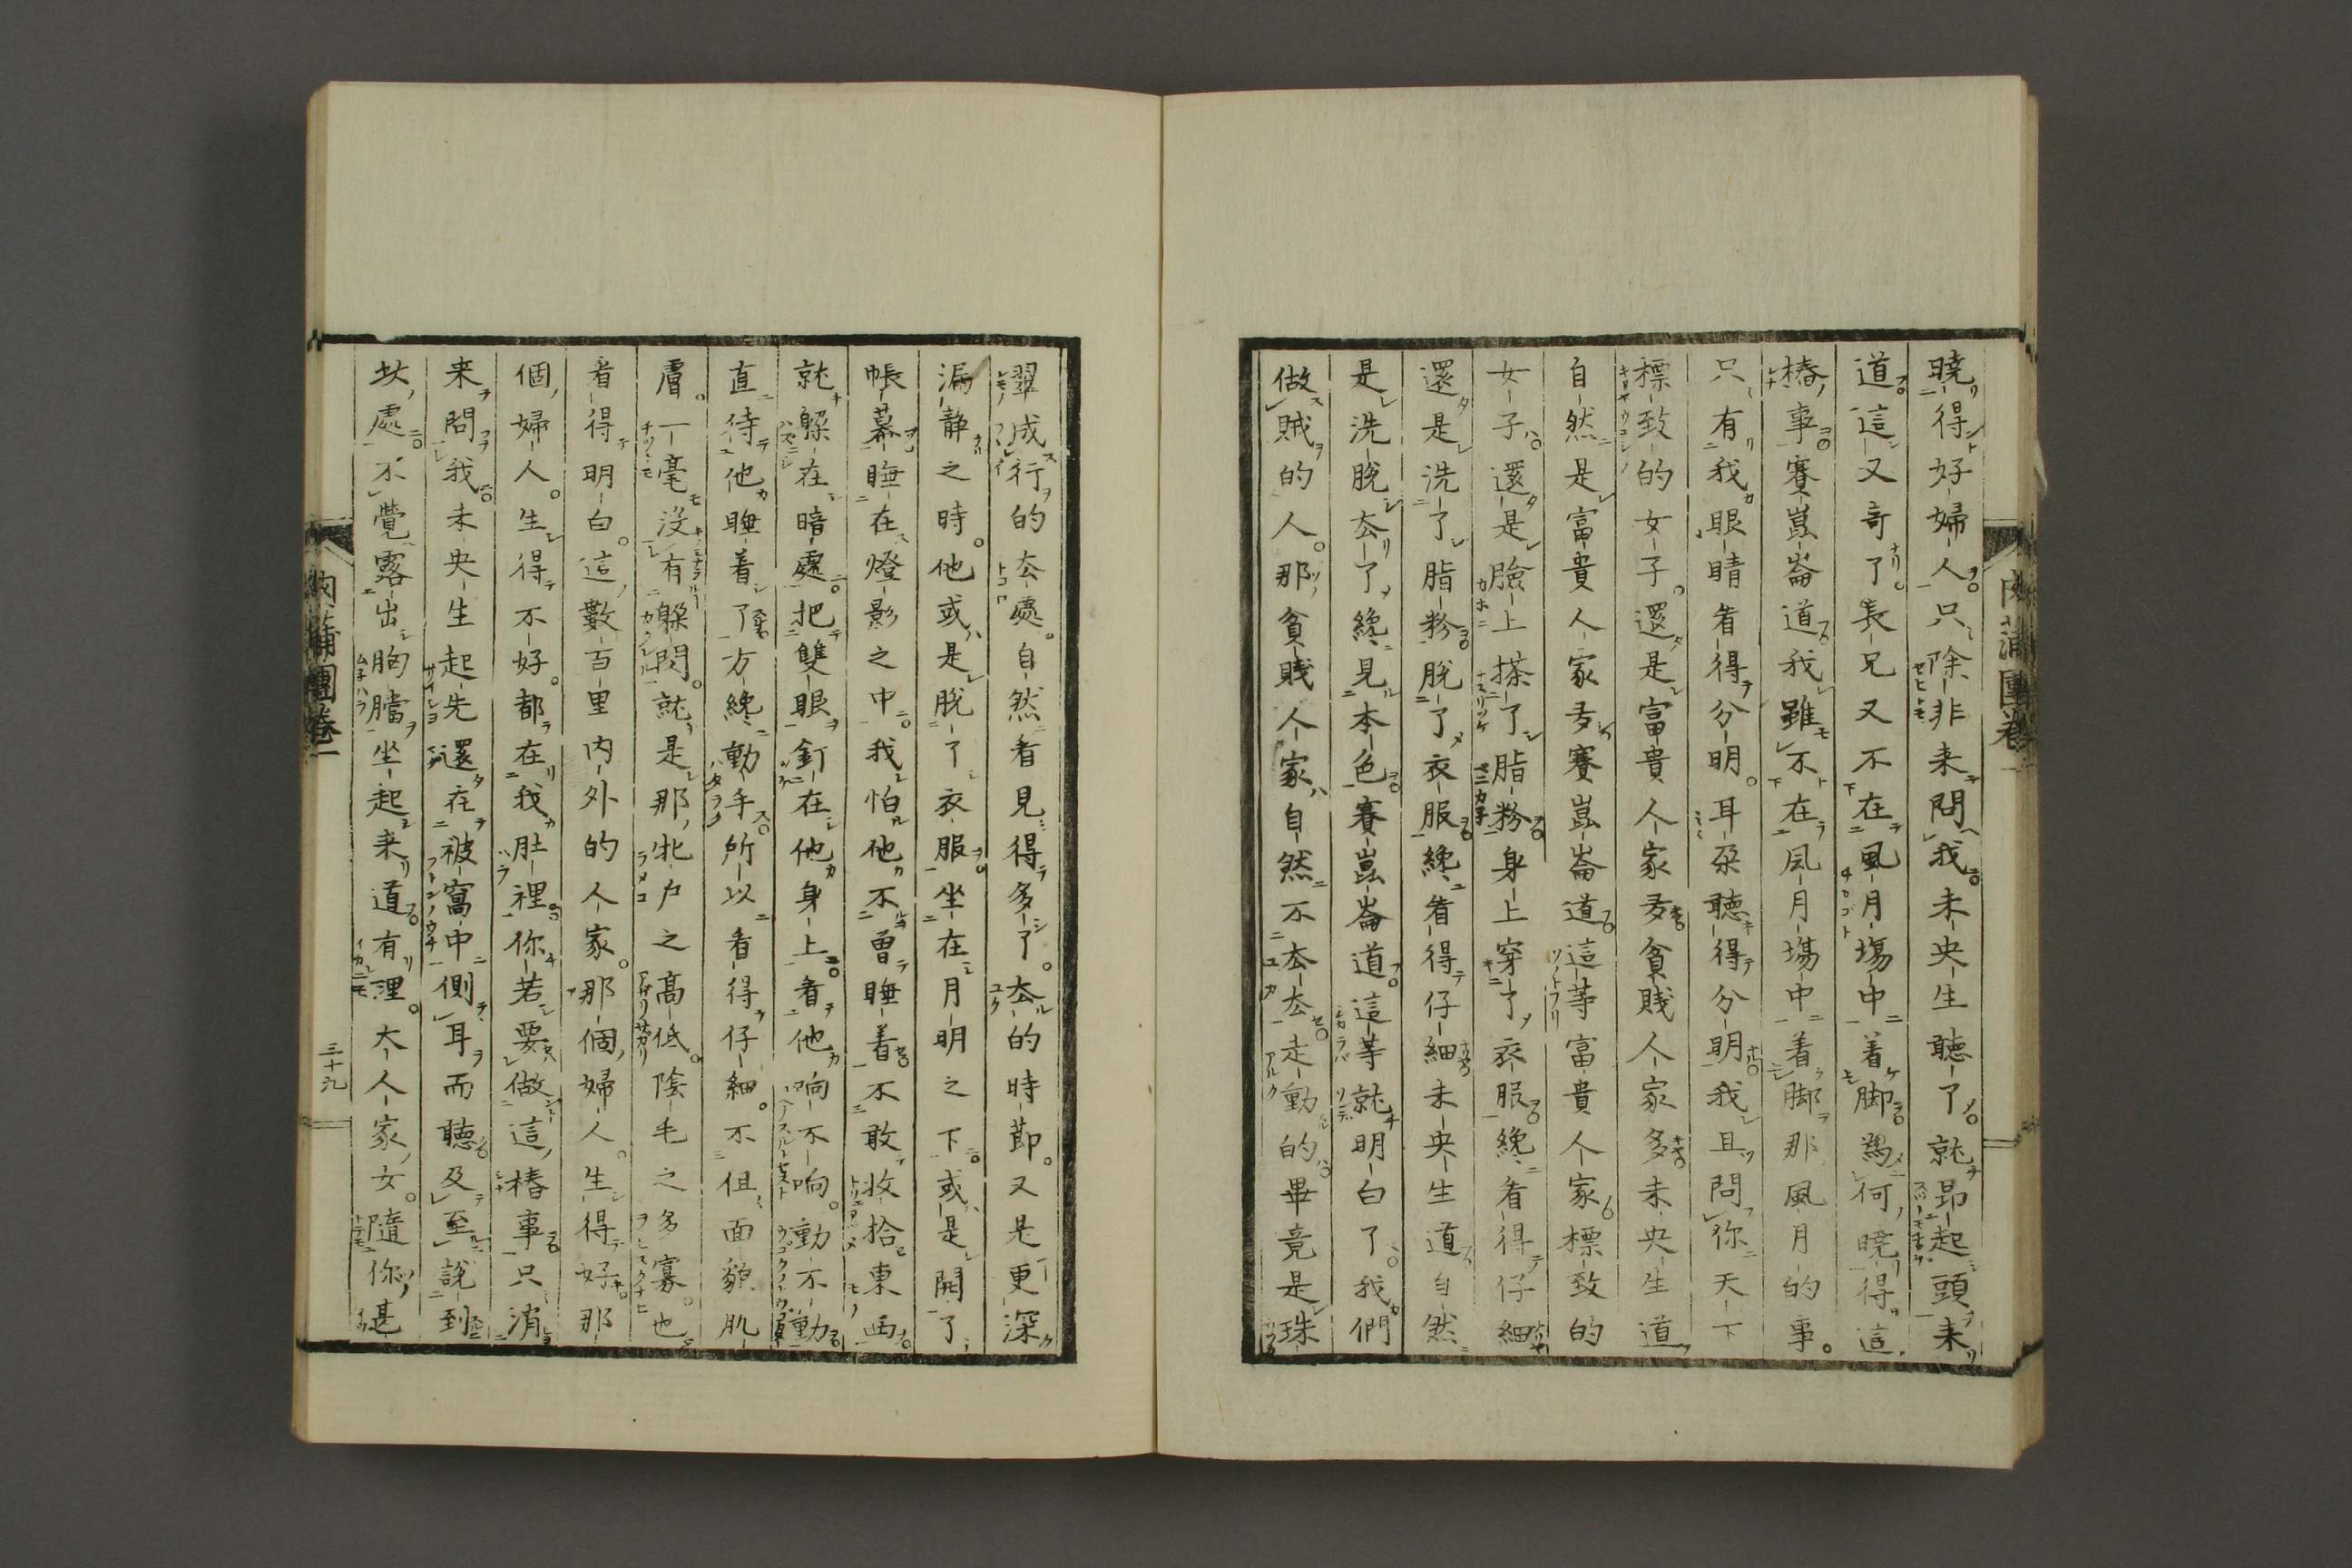 曉得好婦人只除非来問我未央生聽了就昂起頭来
道這又奇了長兄又不在風月場中着脚爲何曉得這
樁事賽崑崙道我雖不在風月場中着脚那風月的事
只有我眼睛看得分明耳朶聽得分明我且問你天下
標致的女子還是富貴人家多貧賤人家多未央生道
自然是富貴人家多賽崑崙道這等富貴人家標致的
女子還是臉上搽了脂粉身上穿了衣服纔看得仔細
還是洗了脂粉脫了衣服纔看得仔細未央生道自然
是洗脫去了纔見本色賽崑崙道這等就明白了我們
做賊的人那貧賤人家自然不去走動的畢竟是珠
翠成行的去處自然看見得多了去的時節又是更深
漏静之時他或是脫了衣服坐在月明之下或是開了
帳幕睡在燈影之中我怕他不曽睡着不敢收拾東西
就躱在暗處把雙眼釘在他身上看他响不响動不動
直待他睡着了方纔動手所以看得仔細不但面貌肌
膚一毫没有躱閃就是那牝户之高低陰毛之多寡也
看得明白這數百里内外的人家那個婦人生得好那
個婦人生得不好都在我肚裡你若要做這樁事只消
来問我未央生起先還在被窩中側耳而聽及至說到
此處不覺露出胸膛坐起来道有理大人家女隨你甚
三十九
肉蒲團卷一